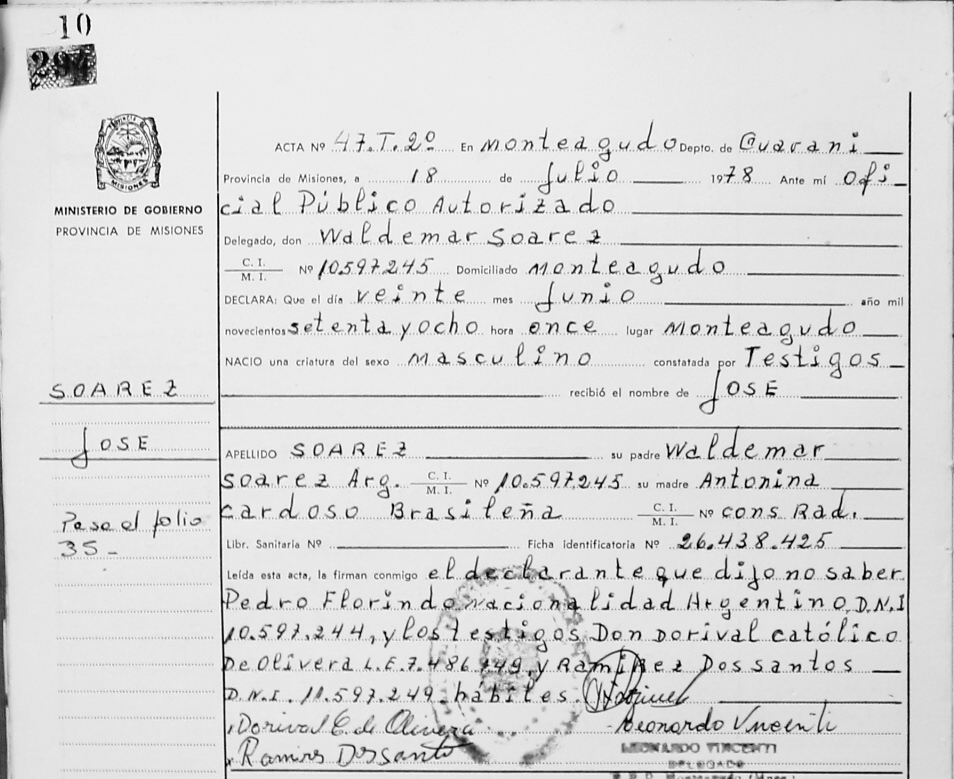 10
294
PROVINCIA DE MISIONES
MINISTERIO DE GOBIERNO
PROVINCIA DE MISIONES
SOAREZ
JOSE
Pasa al folio
35-
ACTA Nº 47.T.2º En Monteagudo Depto. de Guarani
Provincia de Misiones, a 18 de Julio 1978 Ante mí ofi-
cial Público Autorizado
Delegado, don Waldemar Soarez
C. I. / M. I. Nº 10.597.245 Domiciliado Monteagudo
DECLARA: Que el día veinte mes Junio año mil
novecientos setenta y ocho hora once lugar Monteagudo
NACIO una criatura del sexo Masculino constatada por Testigos
recibió el nombre de JOSE
APELLIDO SOAREZ su padre Waldemar
Soarez Arg. C. I. / M. I. Nº 10.597.245 su madre Antonina
Cardoso Brasileña C. I. / M. I. Nº cons Rad.
Libr. Sanitaria Nº Ficha identificatoria Nº 26.438.425
Leída esta acta, la firman conmigo el declarante que dijo no saber
Pedro Florindo Nacionalidad Argentino D.N.I
10.597.244, y los testigos Don Dorival católico
De Olivera L.E. 7.486.749, y Ramirez Dos santos
D.N.I. 11.597.249. habites.
Dorival C. de Olivera
Ramires Dossanto
Leonardo Vincenti
LEONARDO VINCENTI
DELEGADO